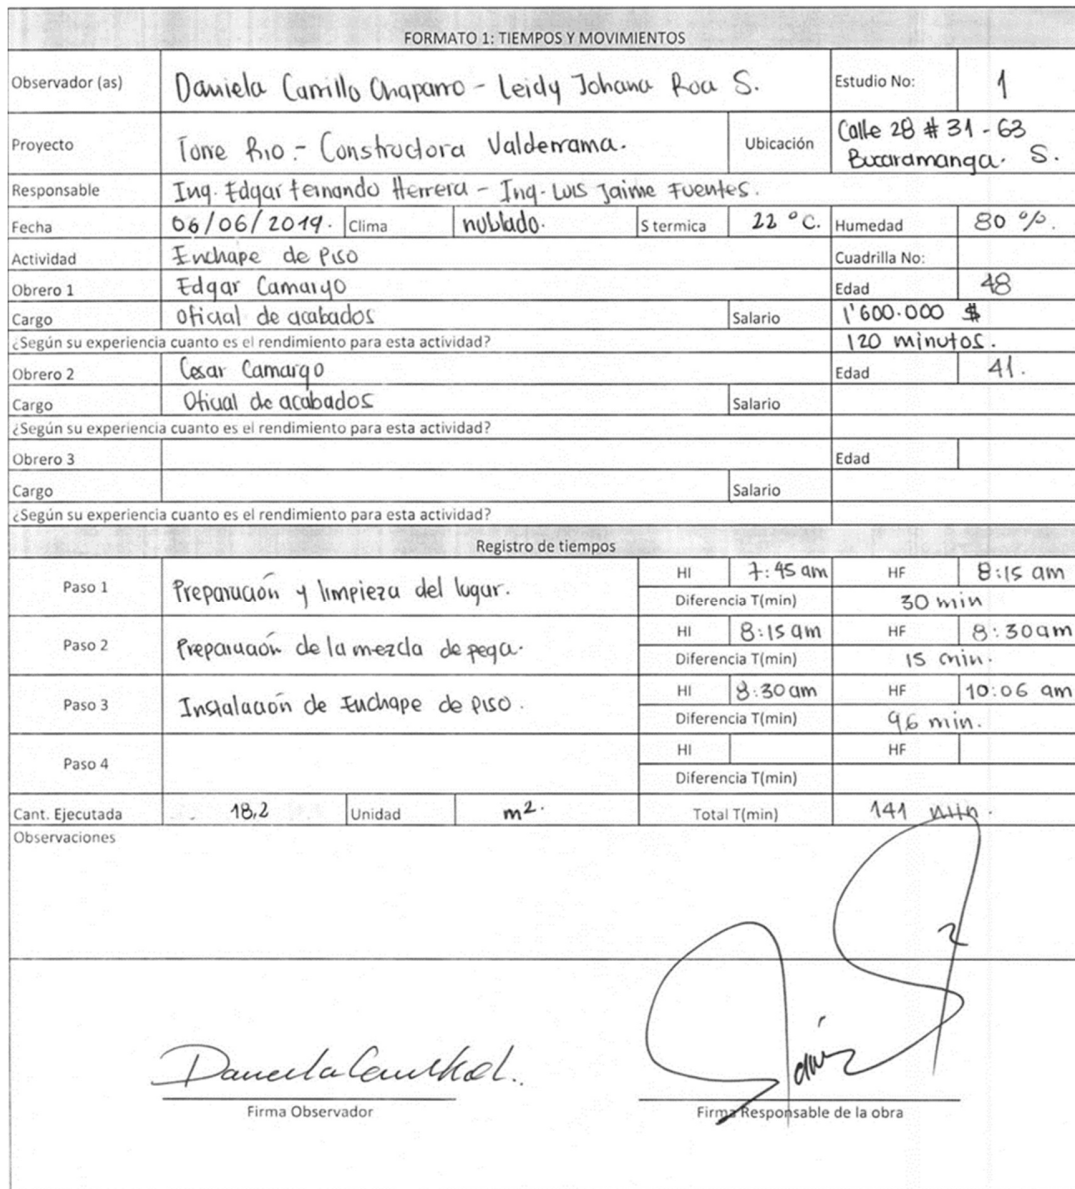 FORMATO 1: TIEMPOS Y MOVIMIENTOS
Observador (as) Daniela Carrillo Chaparro - Leidy Johana Roa S. Estudio No: 1
Proyecto Torre Rio - Constructora Valderrama. Ubicación Calle 28 # 31 - 63
Bucaramanga. S.
Responsable Ing. Edgar Fernando Herrera - Ing. Luis Jaime Fuentes.
Fecha 06/06/2019. Clima nublado. S termica 22 °C. Humedad 80 %.
Actividad Enchape de Piso Cuadrilla No:
Obrero 1 Edgar Camargo Edad 48
Cargo Oficial de acabados Salario 1'600.000 $
¿Según su experiencia cuanto es el rendimiento para esta actividad? 120 minutos.
Obrero 2 Cesar Camargo Edad 41.
Cargo Oficial de acabados Salario
¿Según su experiencia cuanto es el rendimiento para esta actividad?
Obrero 3 Edad
Cargo Salario
¿Según su experiencia cuanto es el rendimiento para esta actividad?
Registro de tiempos
Paso 1 Preparación y limpieza del lugar. HI 7:45 am HF 8:15 am
Diferencia T(min) 30 min
Paso 2 Preparación de la mezcla de pega. HI 8:15 am HF 8:30 am
Diferencia T(min) 15 min.
Paso 3 Instalación de Enchape de piso. HI 8:30 am HF 10:06 am
Diferencia T(min) 96 min.
Paso 4 HI HF
Diferencia T(min)
Cant. Ejecutada 18,2 Unidad m². Total T(min) 141 min.
Observaciones
Firma Observador Firma Responsable de la obra